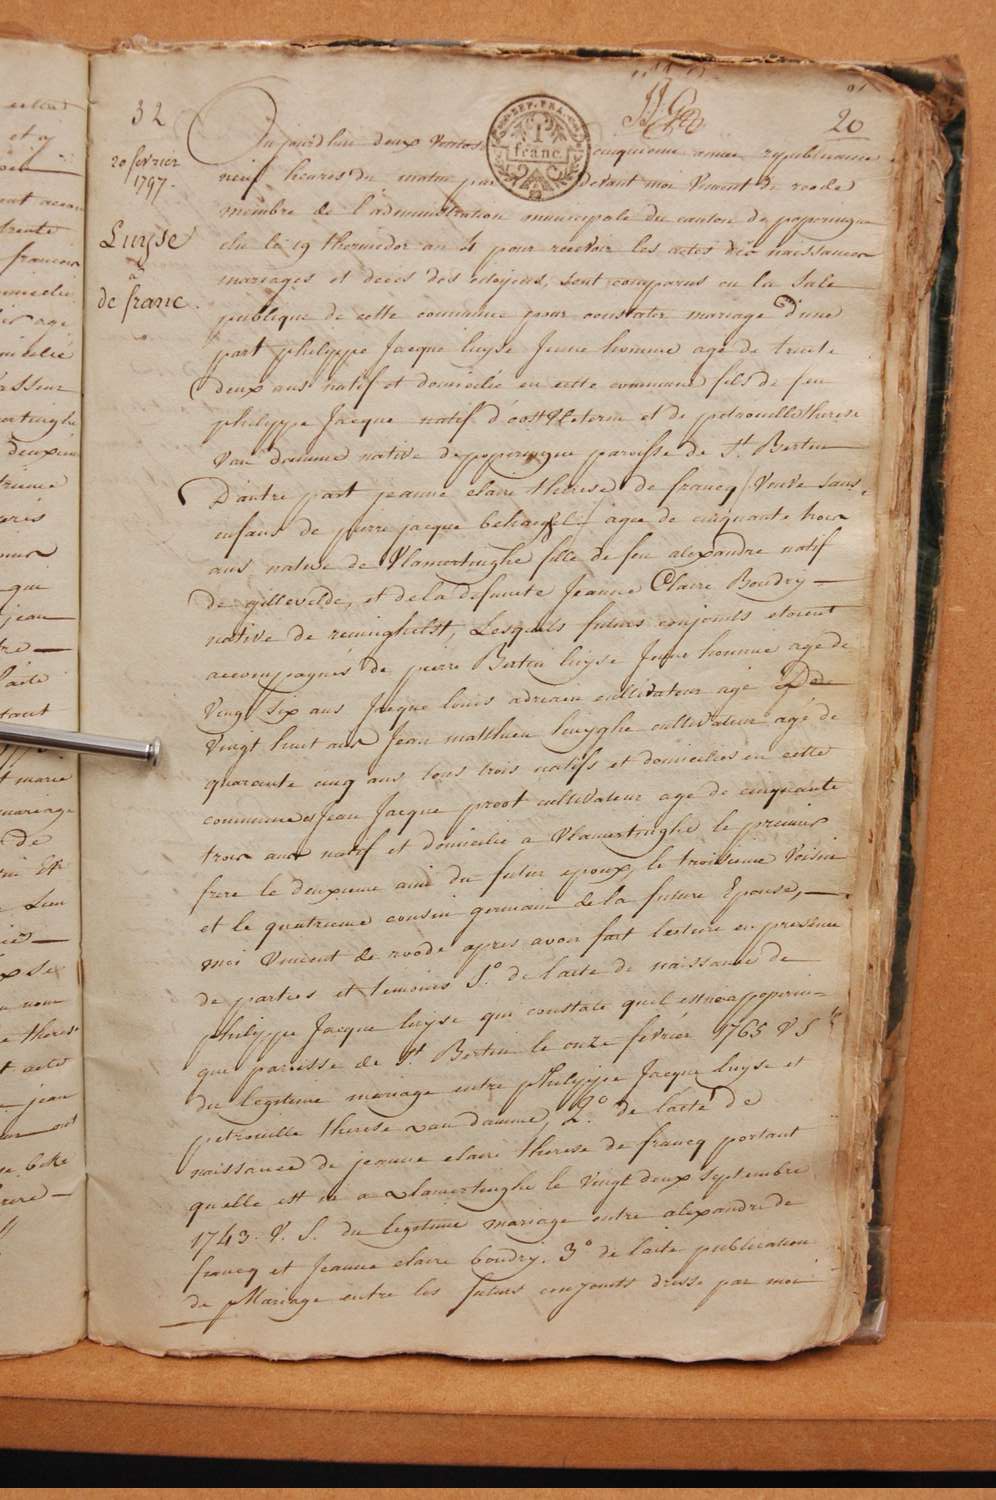 20
32
20 fevrier
1797.
Luyse
à
de franc.
REP. FRA.
1
franc
Aujourdhui deux Ventose cinquieme annee republicaine
neuf heures du matin par devant moi Vincent de roode
membre de l'administration municipale du canton de poperingue
elu le 19 thermidor an 4 pour recevoir les actes de naissances
mariages et deces des citoyens, sont comparus en la Sale
publique de cette commune pour constater mariage D'une
part philippe Jacque luyse Jeune homme age de trente
deux ans natif et domicilié en cette commune fils de feu
philippe Jacque natif d'oostvleteren et de petronille therese
Van damme native de poperingue paroisse de St. Bertin
D'autre part jeanne claire therese de francq (Veuve sans
enfans de pierre jacque behaegel) agee de cinquante trois
ans native de Vlamertinghe fille de feu alexandre natif
de gillevelde, et de la defunte Jeanne Claire Boudry
native de reninghelst, Lesquels futurs conjoints etoient
accompagnés de pierre Bertin luyse Jeune homme age de
Vingt Six ans Jacque louis adriaen cultivateur agé de
Vingt huit ans Jean matthieu huyghe cultivateur agé de
quarante cinq ans tous trois natifs et domicilies en cette
commune et Jean Jacque proot cultivateur age de cinquante
trois ans natif et domicilié a Vlamertinghe le premier
frere le deuxieme ami du futur epoux, le troisieme Voisin
et le quatrieme cousin germain de la future Epouse,
moi Vincent de roode apres avoir fait lecture en presence
de parties et temoins 1.º de l'acte de naissance de
philippe Jacque luyse qui constate quil est né a poperin=
gue paroisse de St. Bertin le onze fevrier 1765 V S
du legitime mariage entre philippe Jacque luyse et
petronille therese van damme, 2.º de l'acte de
naissance de jeanne claire therese de francq portant
quelle est né a vlamertinghe le vingt deux septembre
1743. V. S. du legitime mariage entre alexandre de
francq et Jeanne claire boudry. 3º de l'acte publication
de Mariage entre les futurs conjoints dressé par moi